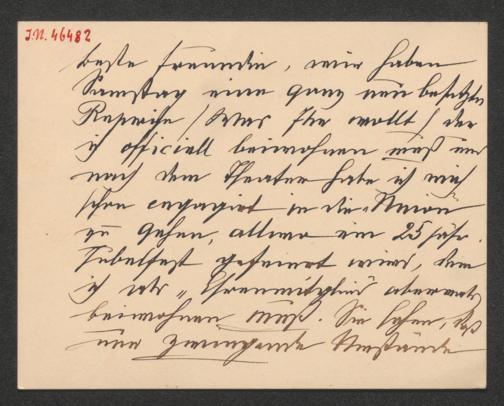 J.N. 46482
beste Freundin, wir haben
Samstag eine ganz neu besetzte
Reprise / Was Ihr wollt / der
ich officiell beiwohnen muß und
nach dem Theater habe ich mich
schon engagirt in die Union
zu gehen, allwo ein 25 jähr.
Jubelfest gefeiert wird, dem
ich als „Ehrenmitglied
beiwohnen muß. Sie sehen, daß
nur zwingende Umstände